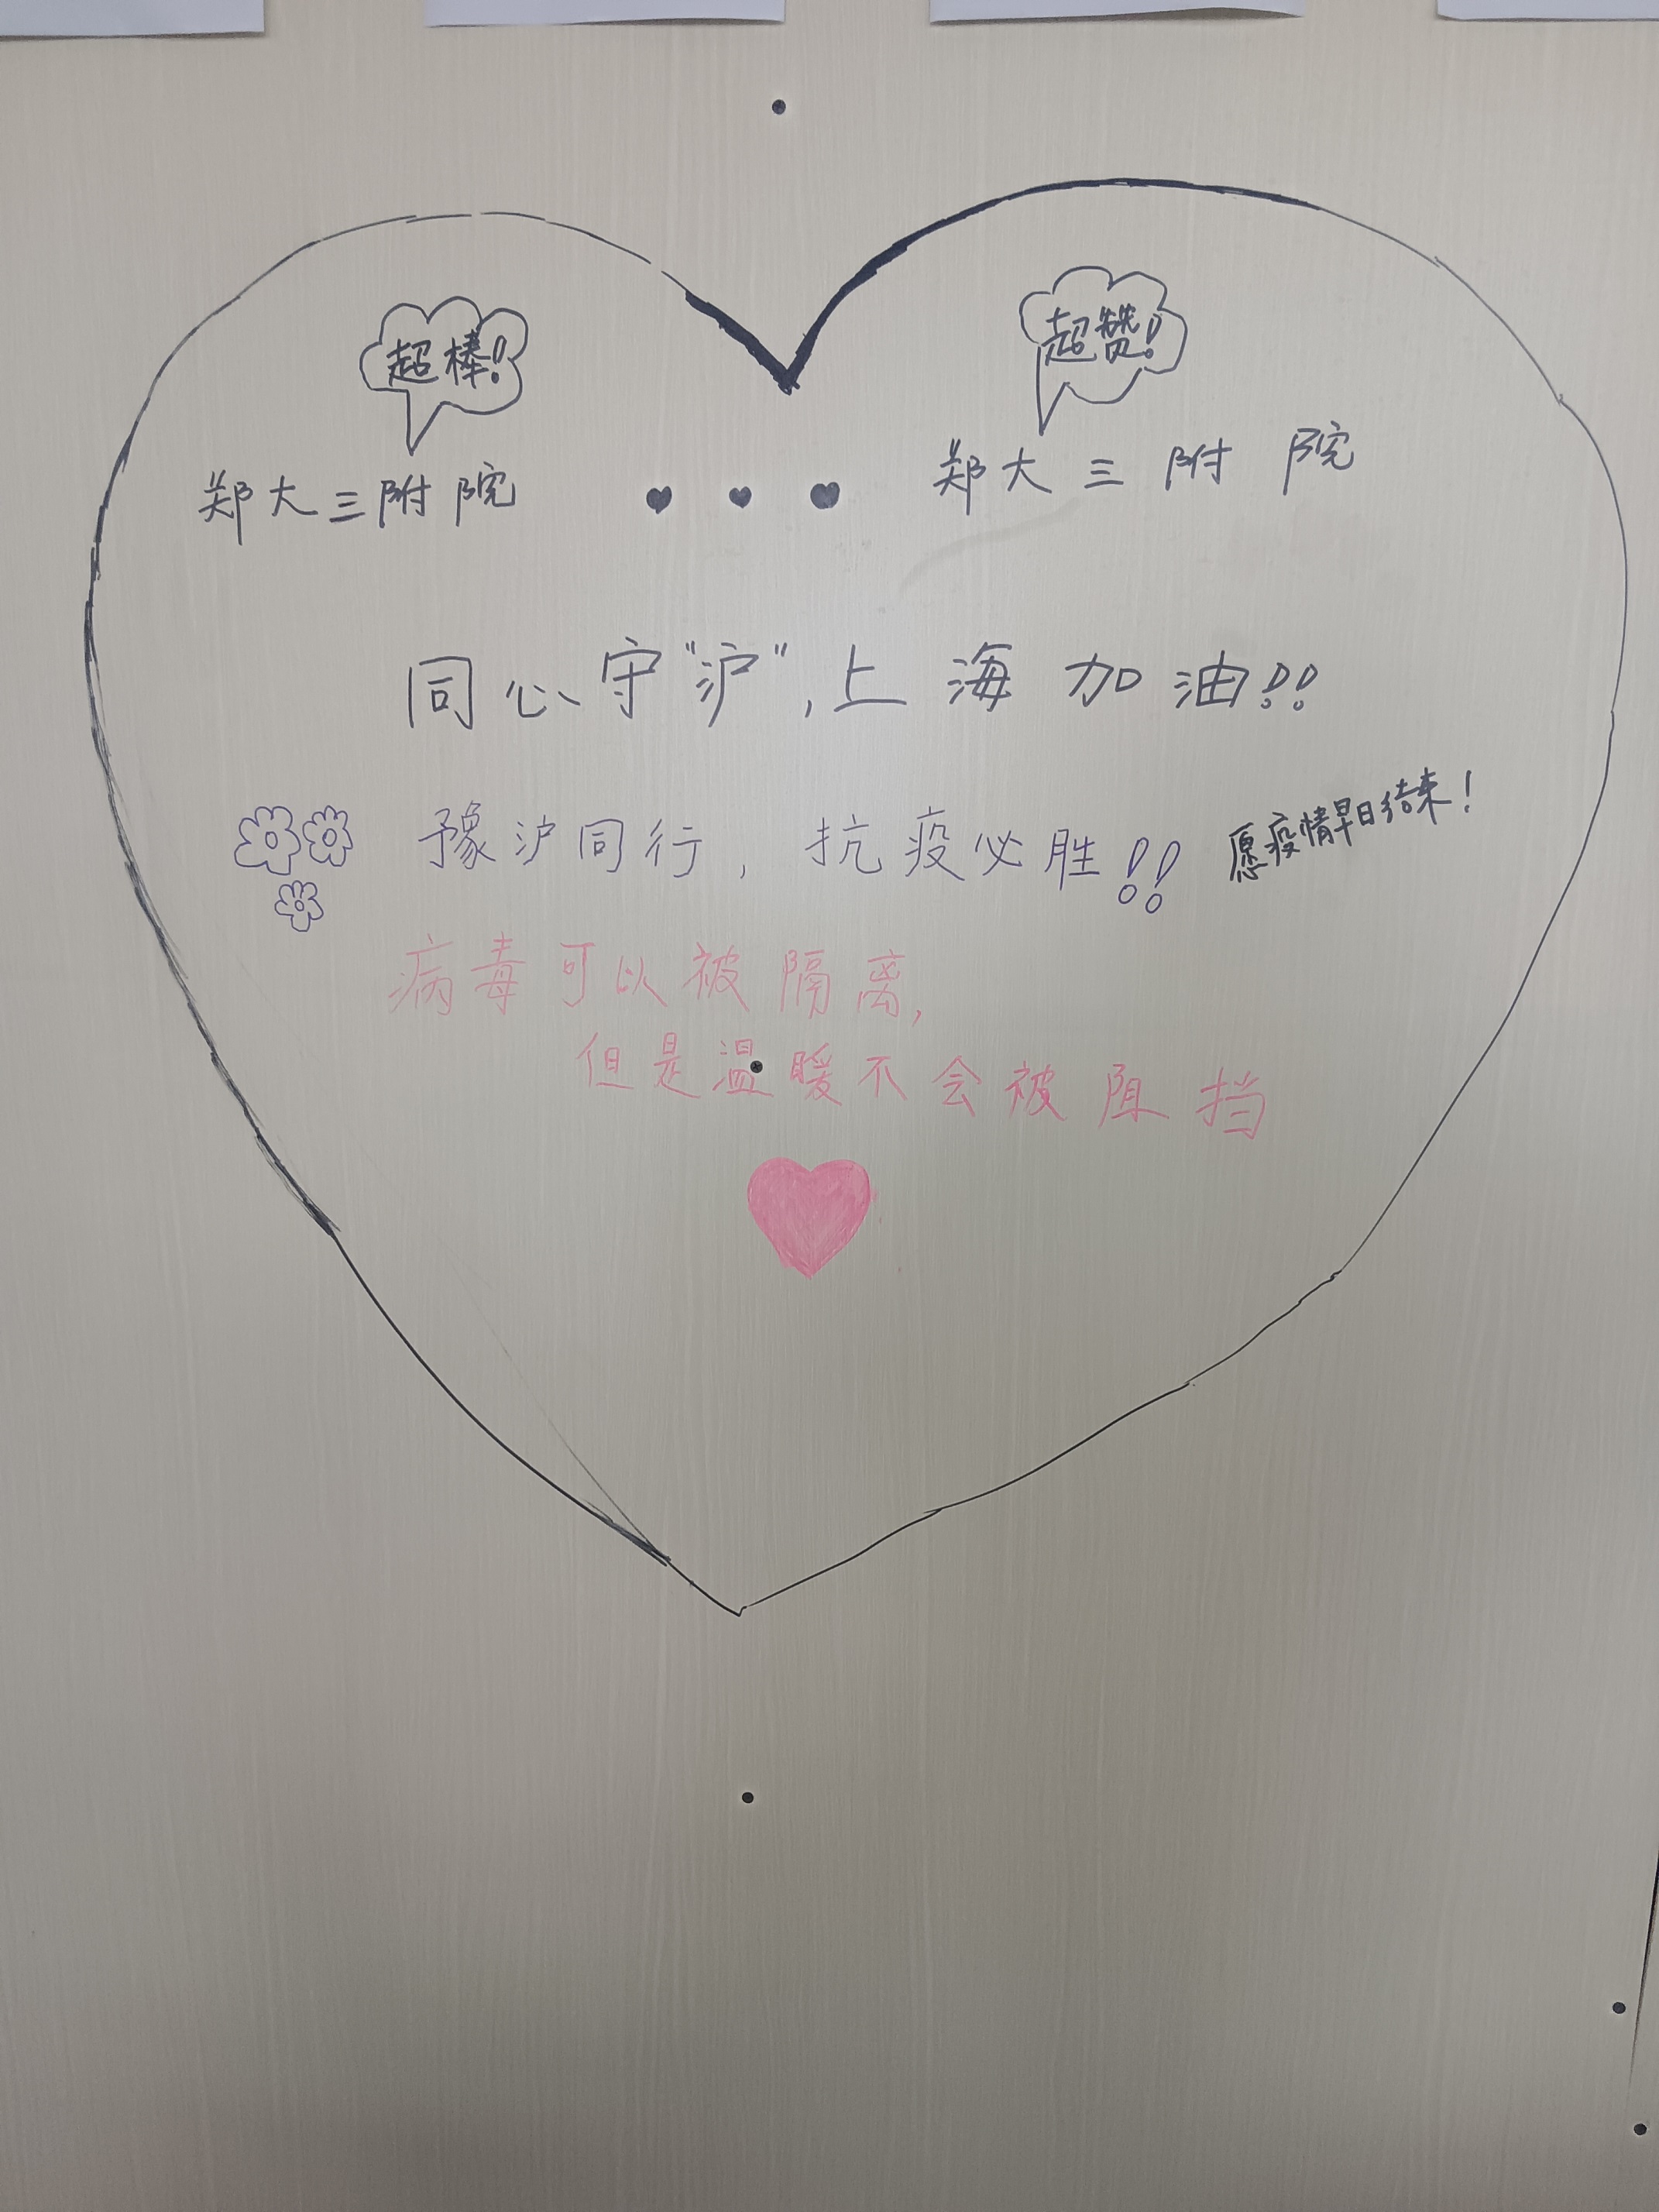 超棒!
超赞!
郑大三附院 郑大三附院
同心守"沪",上海加油!!
豫沪同行,抗疫必胜!!
愿疫情早日结束!
病毒可以被隔离,
但是温暖不会被阻挡